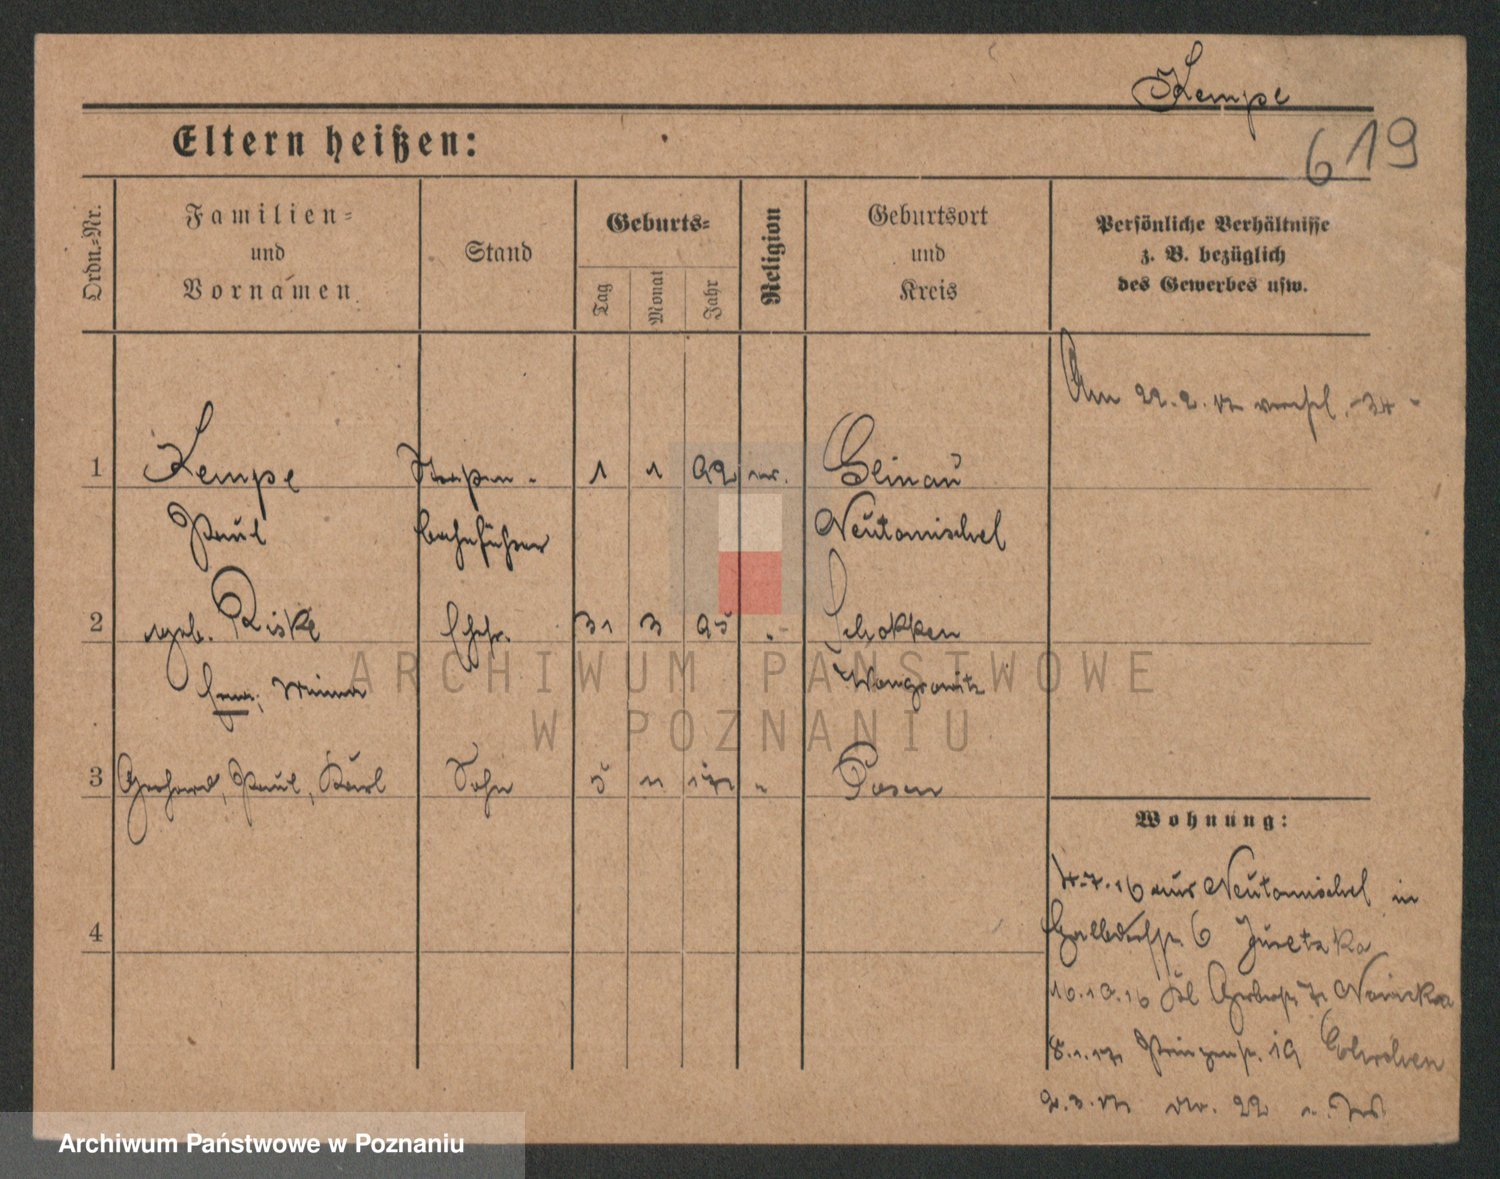 Kempe
619
Eltern heißen:
Ordn.-Nr.
Familien-
und
Vornamen
Stand
Geburts-
Tag
Monat
Jahr
Religion
Geburtsort
und
Kreis
Persönliche Verhältnisse
z. B. bezüglich
des Gewerbes usw.
Am 22.2.17
1 Kempe Straßen- 1 1 92 ev. Glinau
Paul bahnführer Neutomischel
2 geb. Riske Ehefr. 31 3 95 " Schokken
Emma Wongrowitz
3 Gerhard, Paul, Karl Sohn 5 11 " Posen
4
Wohnung:
4.7.16 aus Neutomischel in
6
10.10.16
8.1.17 Prinzenstr. 19
2.3.17 22
ARCHIWUM PAŃSTWOWE
W POZNANIU
Archiwum Państwowe w Poznaniu